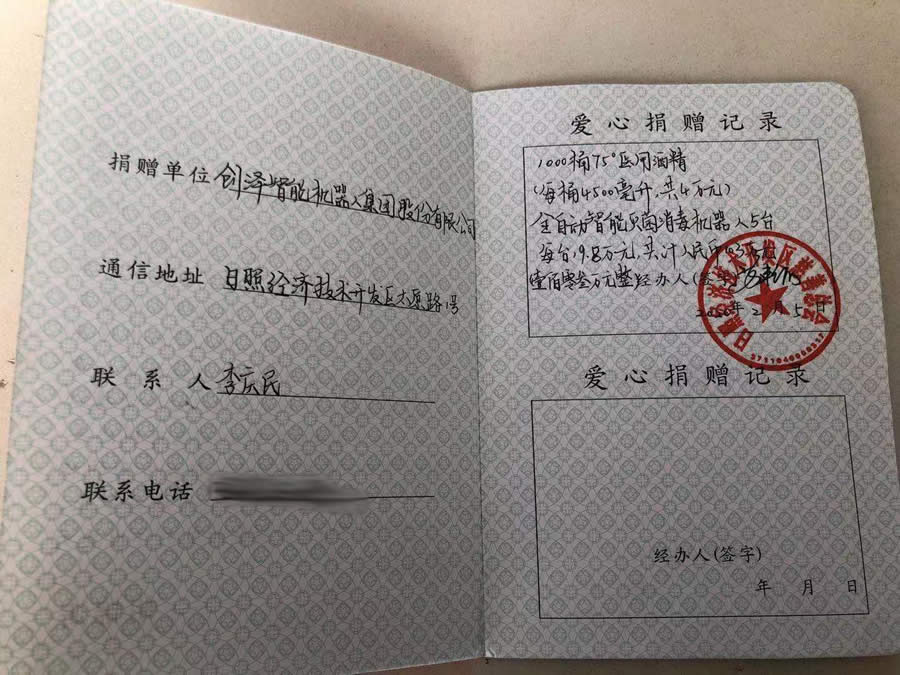 捐赠单位 创泽智能机器人集团股份有限公司
通信地址 日照经济技术开发区太原路 号
联 系 人 李庆民
联系电话
爱心捐赠记录
1000桶75°医用酒精
(每桶4500毫升,共4万元)
全自动智能灭菌消毒机器人5台
每台19.8万元,共计人民币
壹佰零叁万元整 经办人(签字)
2020年2月5日
爱心捐赠记录
经办人(签字)
年 月 日